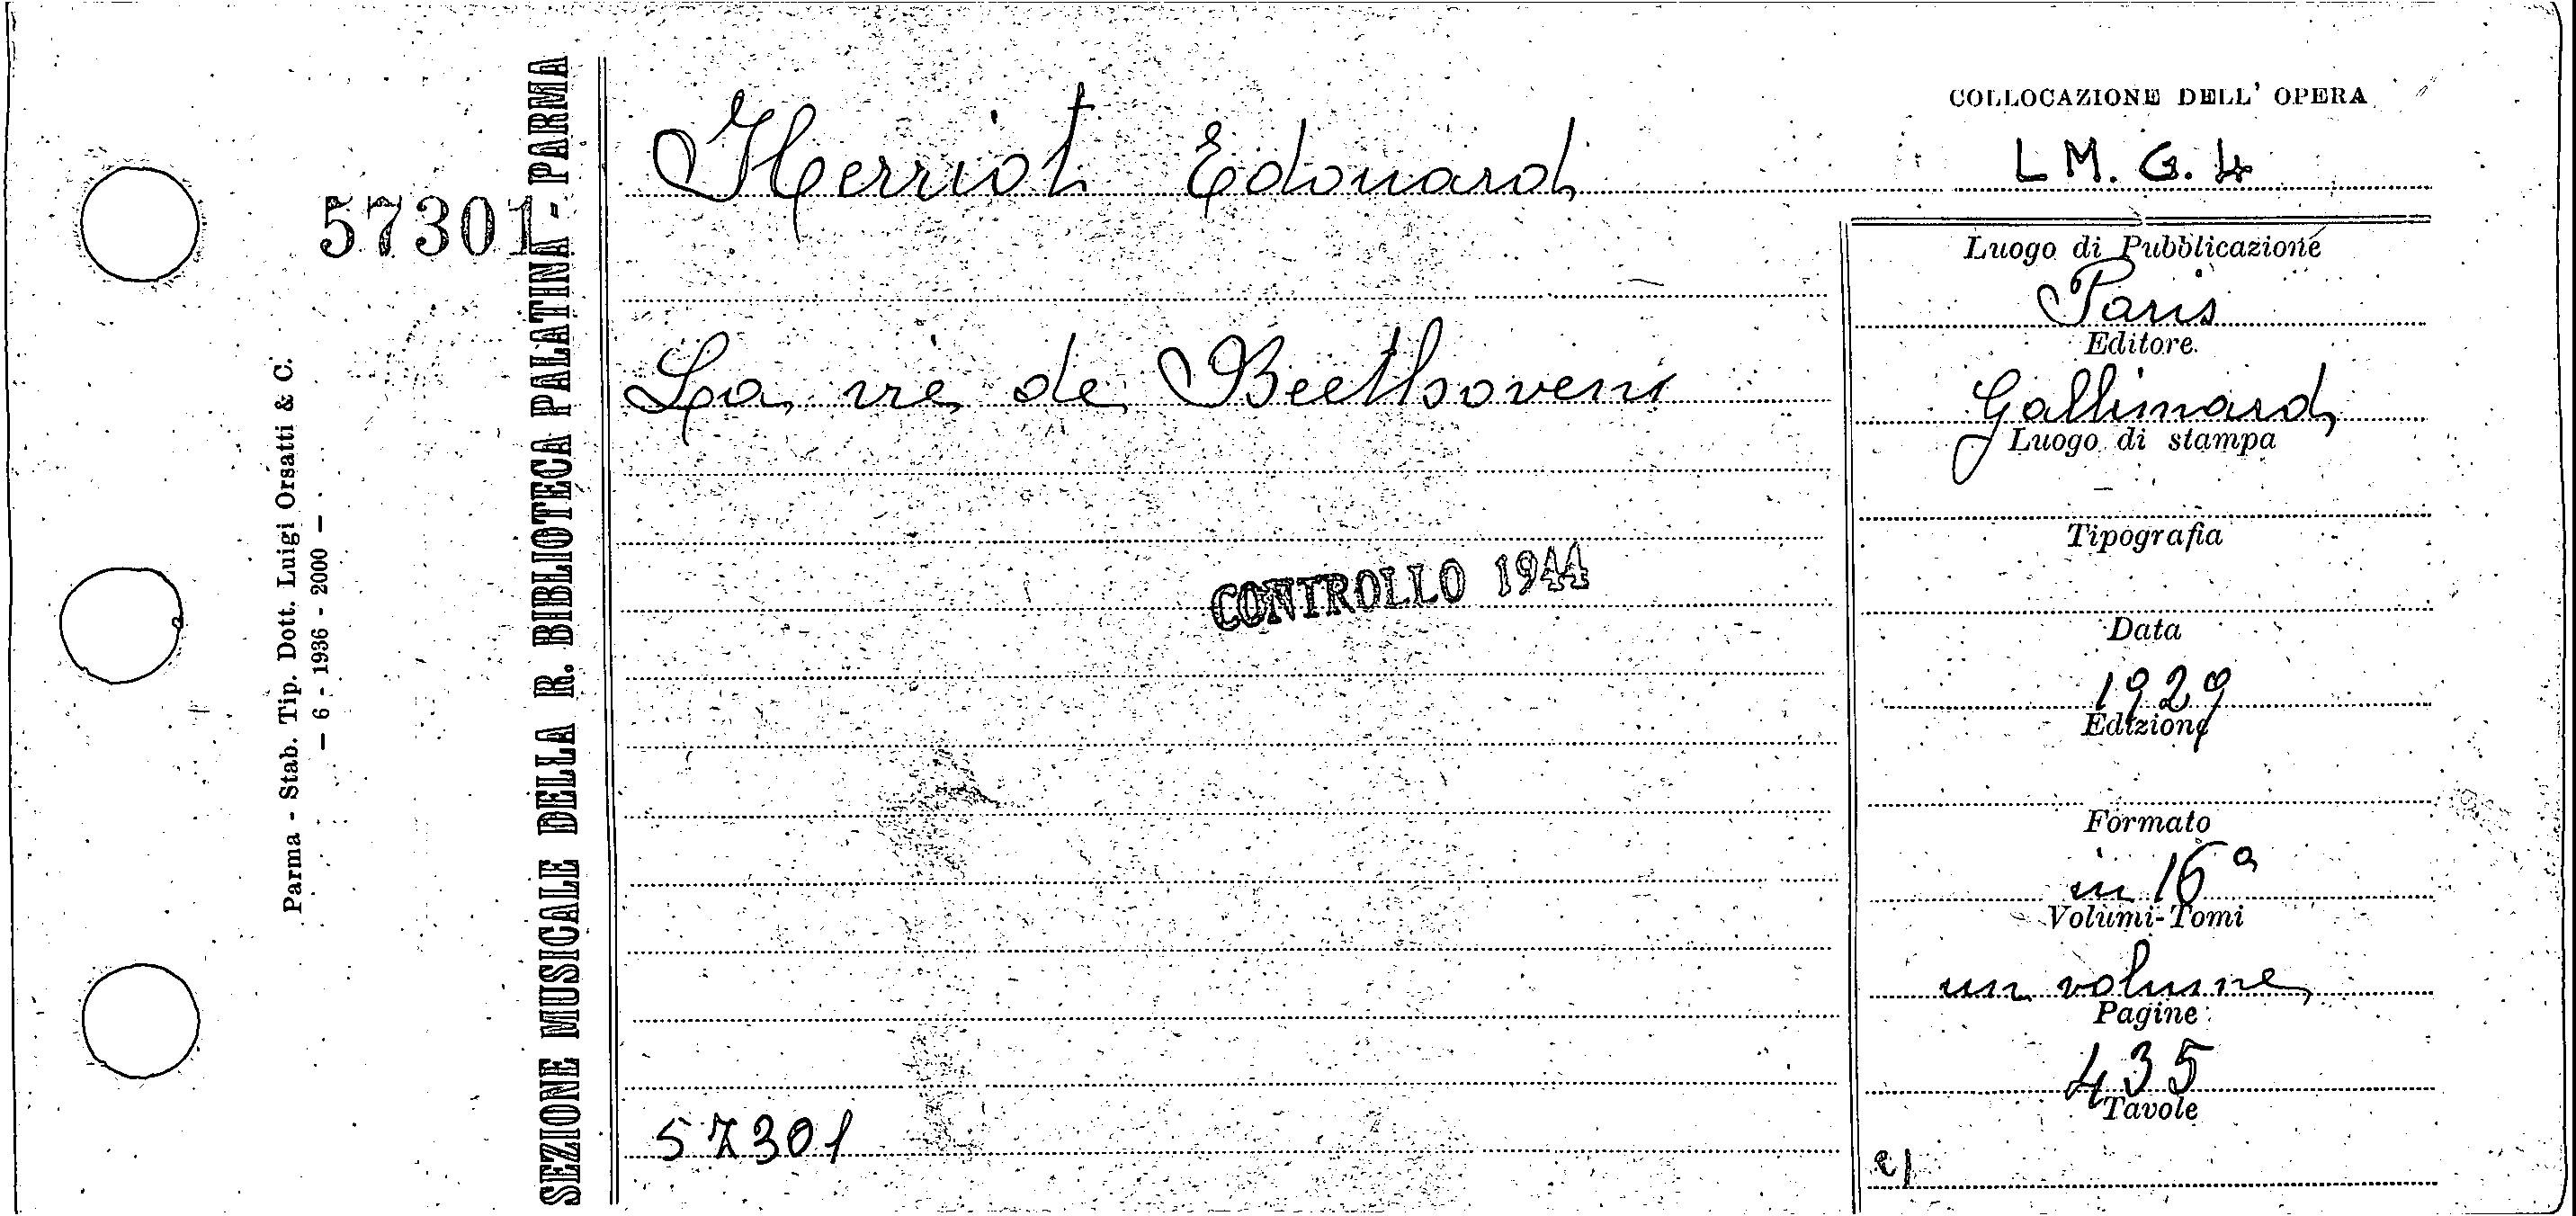 57301
Parma - Stab. Tip. Dott. Luigi Orsatti & C.
— 6 - 1936 - 2000 —
SEZIONE MUSICALE DELLA R. BIBLIOTECA PALATINA - PARMA
Herriot Edouard
La vie de Beethoven
CONTROLLO 1944
57301
COLLOCAZIONE DELL' OPERA
L M. G. 4
Luogo di Pubblicazione
Paris
Editore
Gallimard
Luogo di stampa
Tipografia
Data
1929
Edizione
Formato
in 16°
Volumi-Tomi
un volume
Pagine
435
Tavole